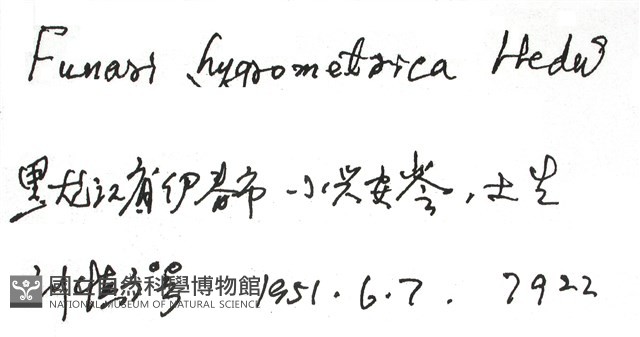 Funari hygrometrica Hedw
黑龙江省伊春市 小兴安岭，土生
刘慎谔 1951.6.7. 7922
國立自然科學博物館
NATIONAL MUSEUM OF NATURAL SCIENCE